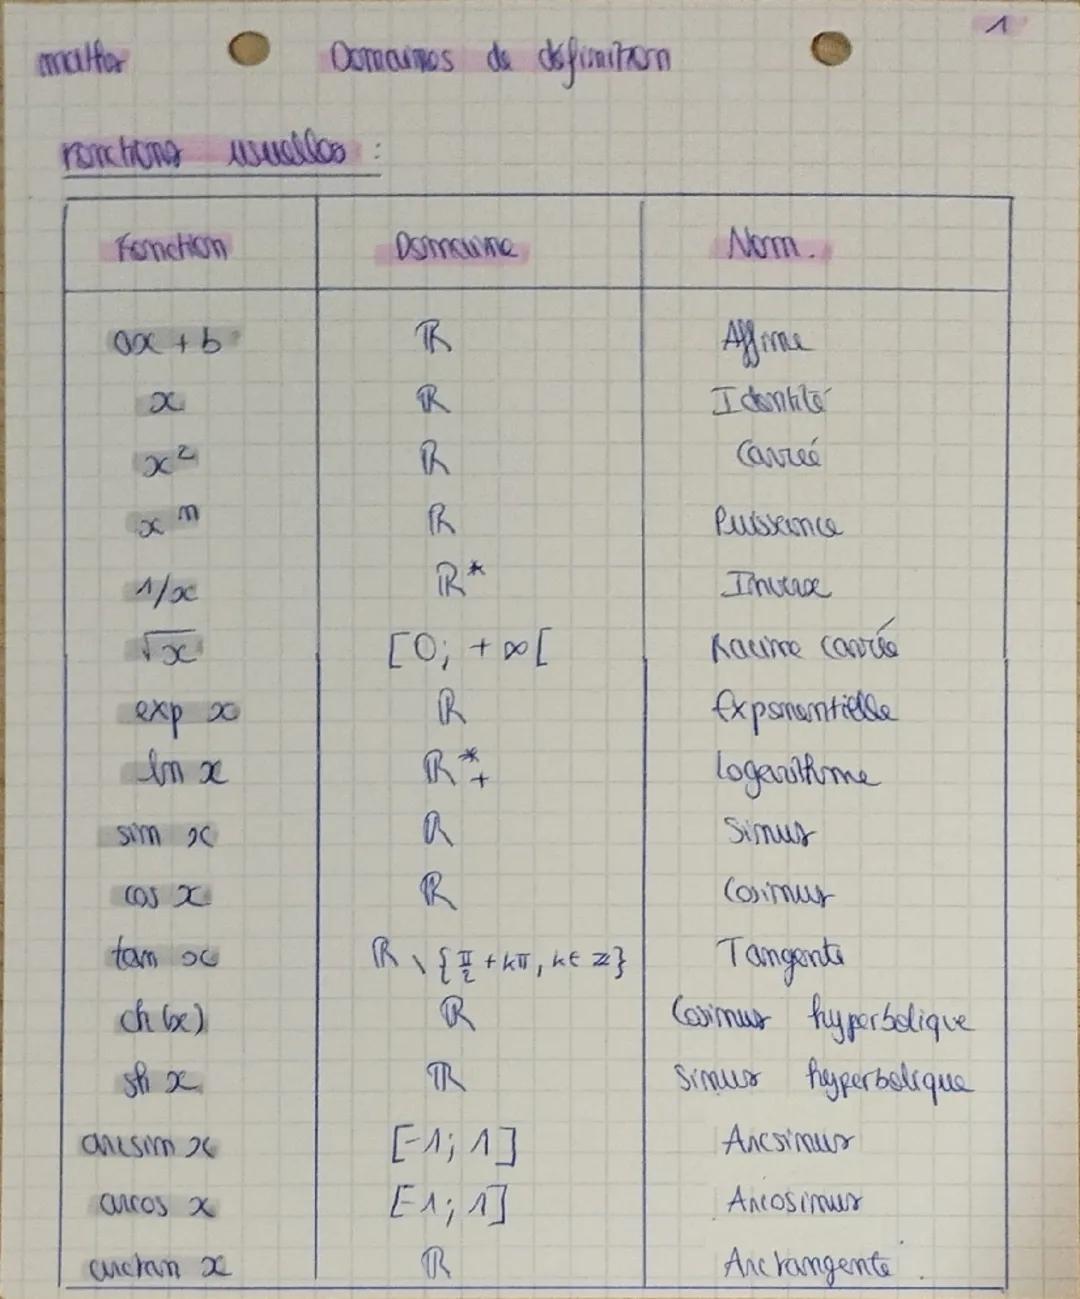 maths Domaines de définition 1
Fonctions usuelles :
Fonction Domaine Nom.
ax + b ℝ Affine
x ℝ Identité
x² ℝ Carreé
xⁿ ℝ Puissance
1/x ℝ* Inverse
√x [0; +∞[ Racine carrée
exp x ℝ Exponentielle
ln x ℝ*₊ Logarithme
sin x ℝ Sinus
cos x ℝ Cosinus
tan x ℝ \ {π/2 + kπ, k ∈ ℤ} Tangente
ch(x) ℝ Cosinus hyperbolique
sh x ℝ Sinus hyperbolique
arcsin x [-1; 1] Arcsinus
arcos x [-1; 1] Arcosinus
arctan x ℝ Arctangente